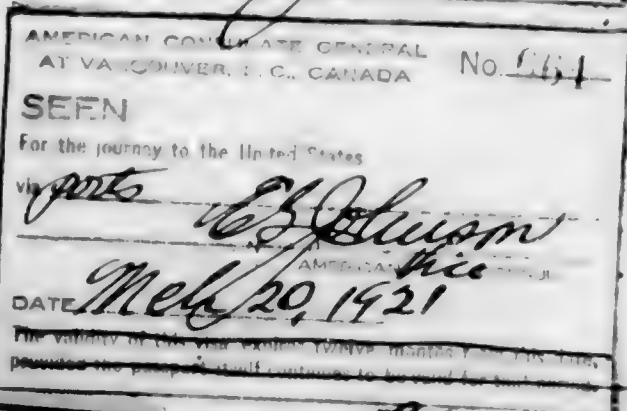 AMERICAN CONSULATE GENERAL
AT VANCOUVER, B. C., CANADA
No.
SEEN
For the journey to the United States
via ports
E G Johnson
AMERICAN Vice CONSUL
DATE Mch 20, 1921
The validity of this visa expires twelve months from this date,
provided the passport itself continues to be valid for that period.